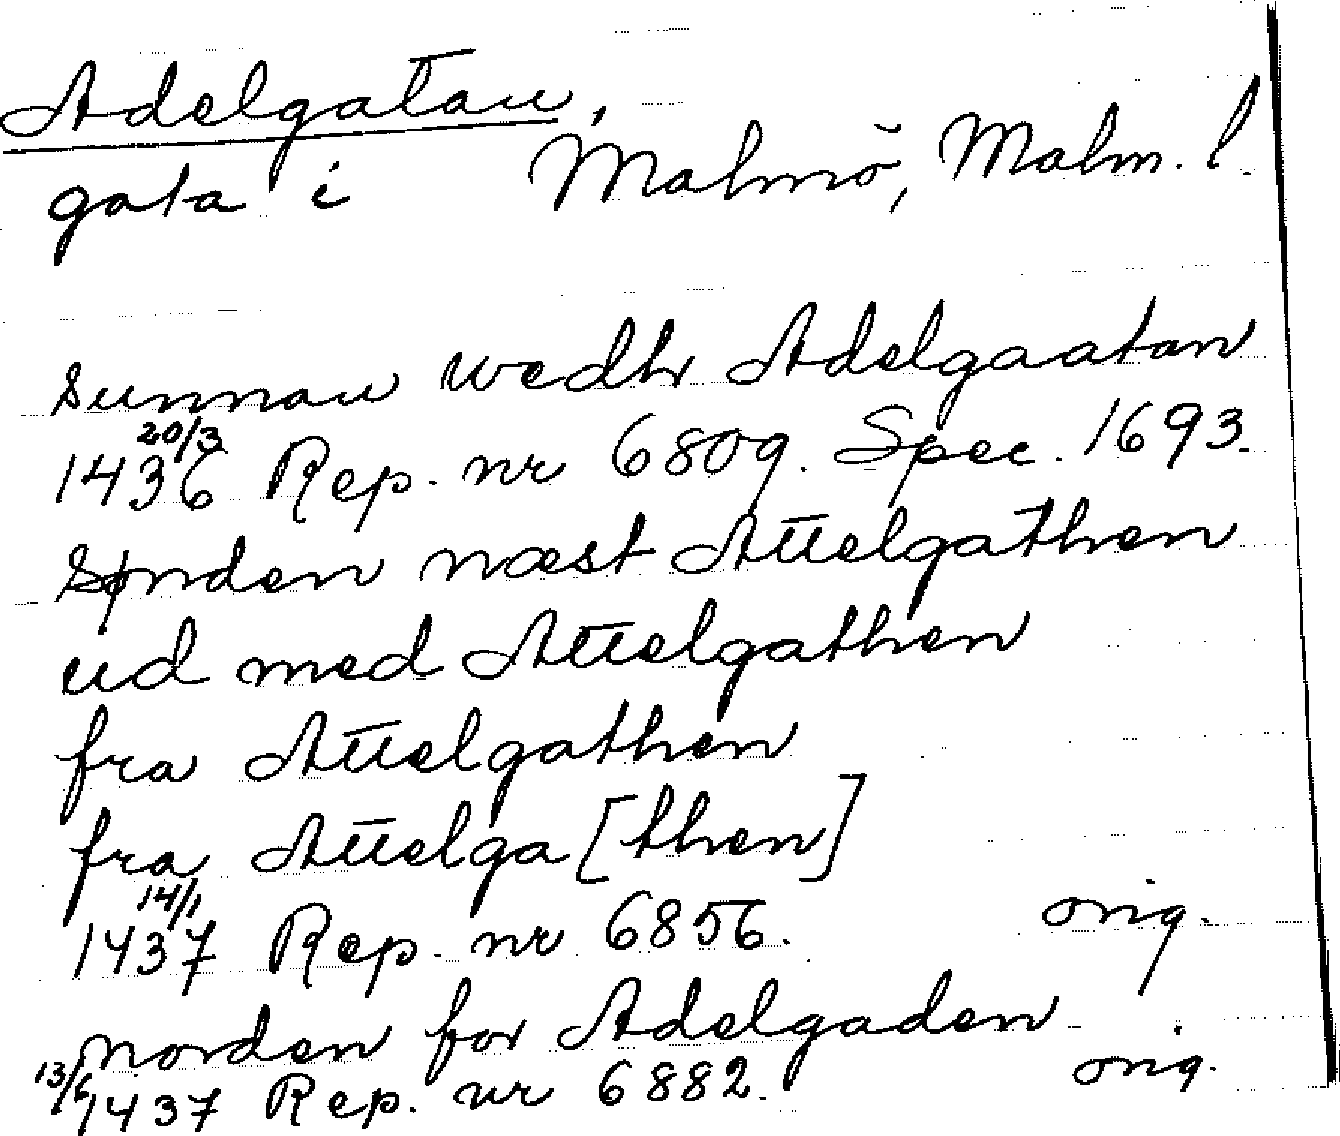 Adelgatan,
gata i Malmö, Malm. l.
sunnan wedhr Adelgaatan
20/3 1436 Rep. nr 6809. Spec. 1693.
sønden næst Attelgathen
ud med Attelgathen
fra Attelgathen
fra Attelga[then]
14/1 1437 Rep. nr 6856. orig.
norden for Adelgaden
13/6 1437 Rep. nr 6882. orig.